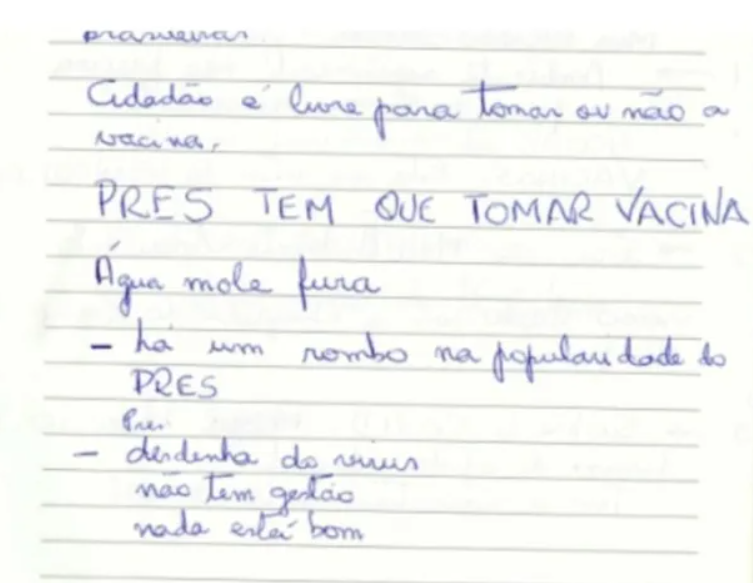 brasileiras
Cidadão é livre para tomar ou não a
vacina.
PRES TEM QUE TOMAR VACINA
Água mole fura
- há um rombo na popularidade do
PRES
Pres
- desdenha do vírus
não tem gestão
nada está bom